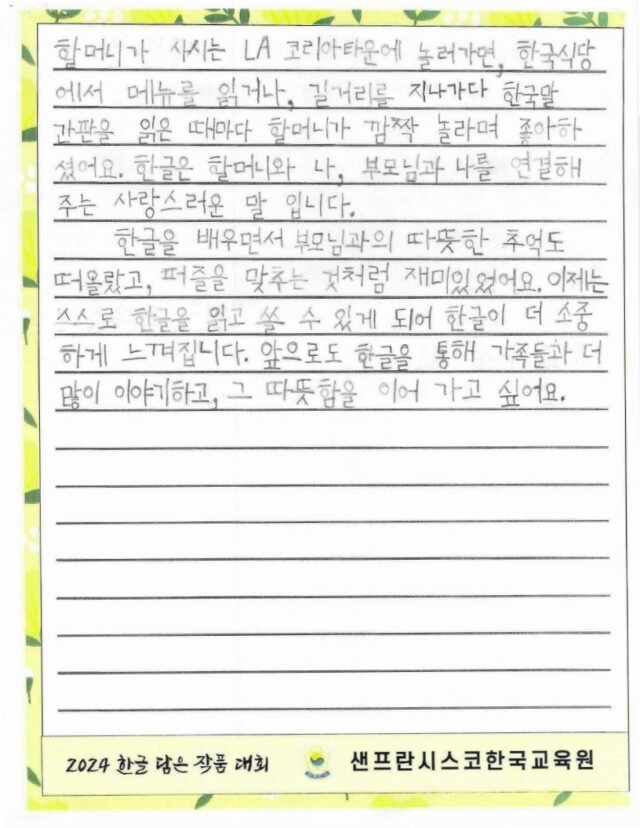 할머니가 사시는 LA 코리아타운에 놀러가면, 한국식당
에서 메뉴를 읽거나, 길거리를 지나가다 한국말
간판을 읽은 때마다 할머니가 깜짝 놀라며 좋아하
셨어요. 한글은 할머니와 나, 부모님과 나를 연결해
주는 사랑스러운 말 입니다.
한글을 배우면서 부모님과의 따뜻한 추억도
떠올랐고, 퍼즐을 맞추는 것처럼 재미있었어요. 이제는
스스로 한글을 읽고 쓸 수 있게 되어 한글이 더 소중
하게 느껴집니다. 앞으로도 한글을 통해 가족들과 더
많이 이야기하고, 그 따뜻함을 이어 가고 싶어요.
2024 한글 담은 작품 대회
샌프란시스코한국교육원